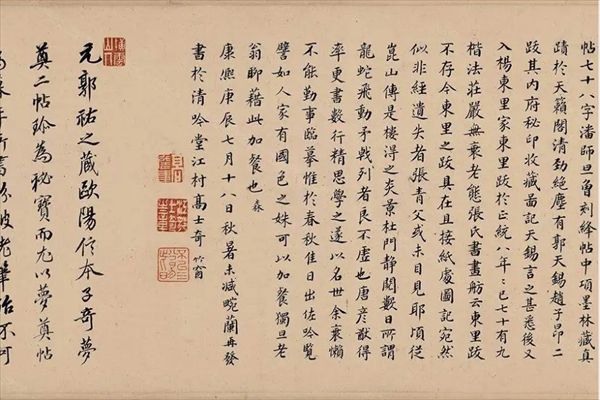 帖七十八字潘師旦曾刻絳帖中項墨林藏真
蹟於天籟閣清勁絕塵有郭天錫趙子昂二
跋其内府秘印收藏圖記天錫言之甚悉後又
入楊東里家東里跋於正統八年:已七十有九
楷法莊嚴無衰老態張氏書畫舫云東里跋
不存今東里之跋具在且接紙處圖記宛然
似非經遺失者張青父或未目見耶頃從
崑山傳是樓得之炎景杜門静閱數日所謂
龍蛇飛動矛戟列者良不虛也唐彥猷得
率更書數行精思學之遂以名世余衰懶
不能勤事臨摹惟於春秋佳日出佐吟覧
譬如人家有國色之姝可以加餐獨旦老
翁聊藉此加餐也
康熙庚辰七月十八日秋暑未減畹蘭再發
書於清吟堂江村髙士奇 竹窗
元郭祐之藏歐陽信本子奇夢
奠二帖珍為秘寶而尤以夢奠帖